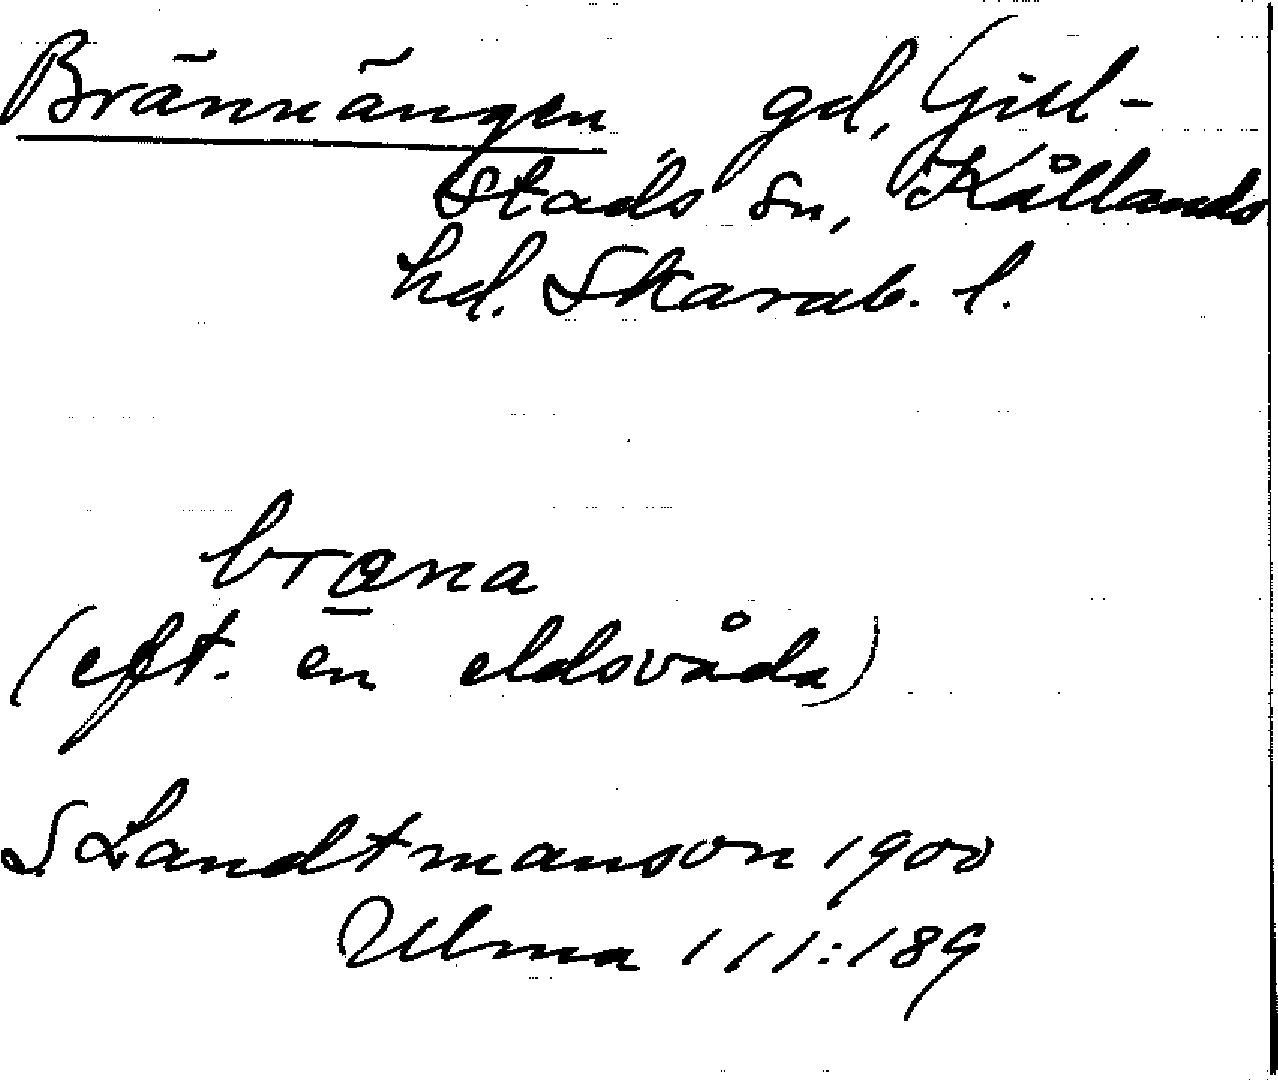 Brännängen gd, Gill-
stads sn, Kållands
hd. Skarab. l.
bræna
(eft. en eldsvåda)
S Landtmanson 1900
Ulma 111:189